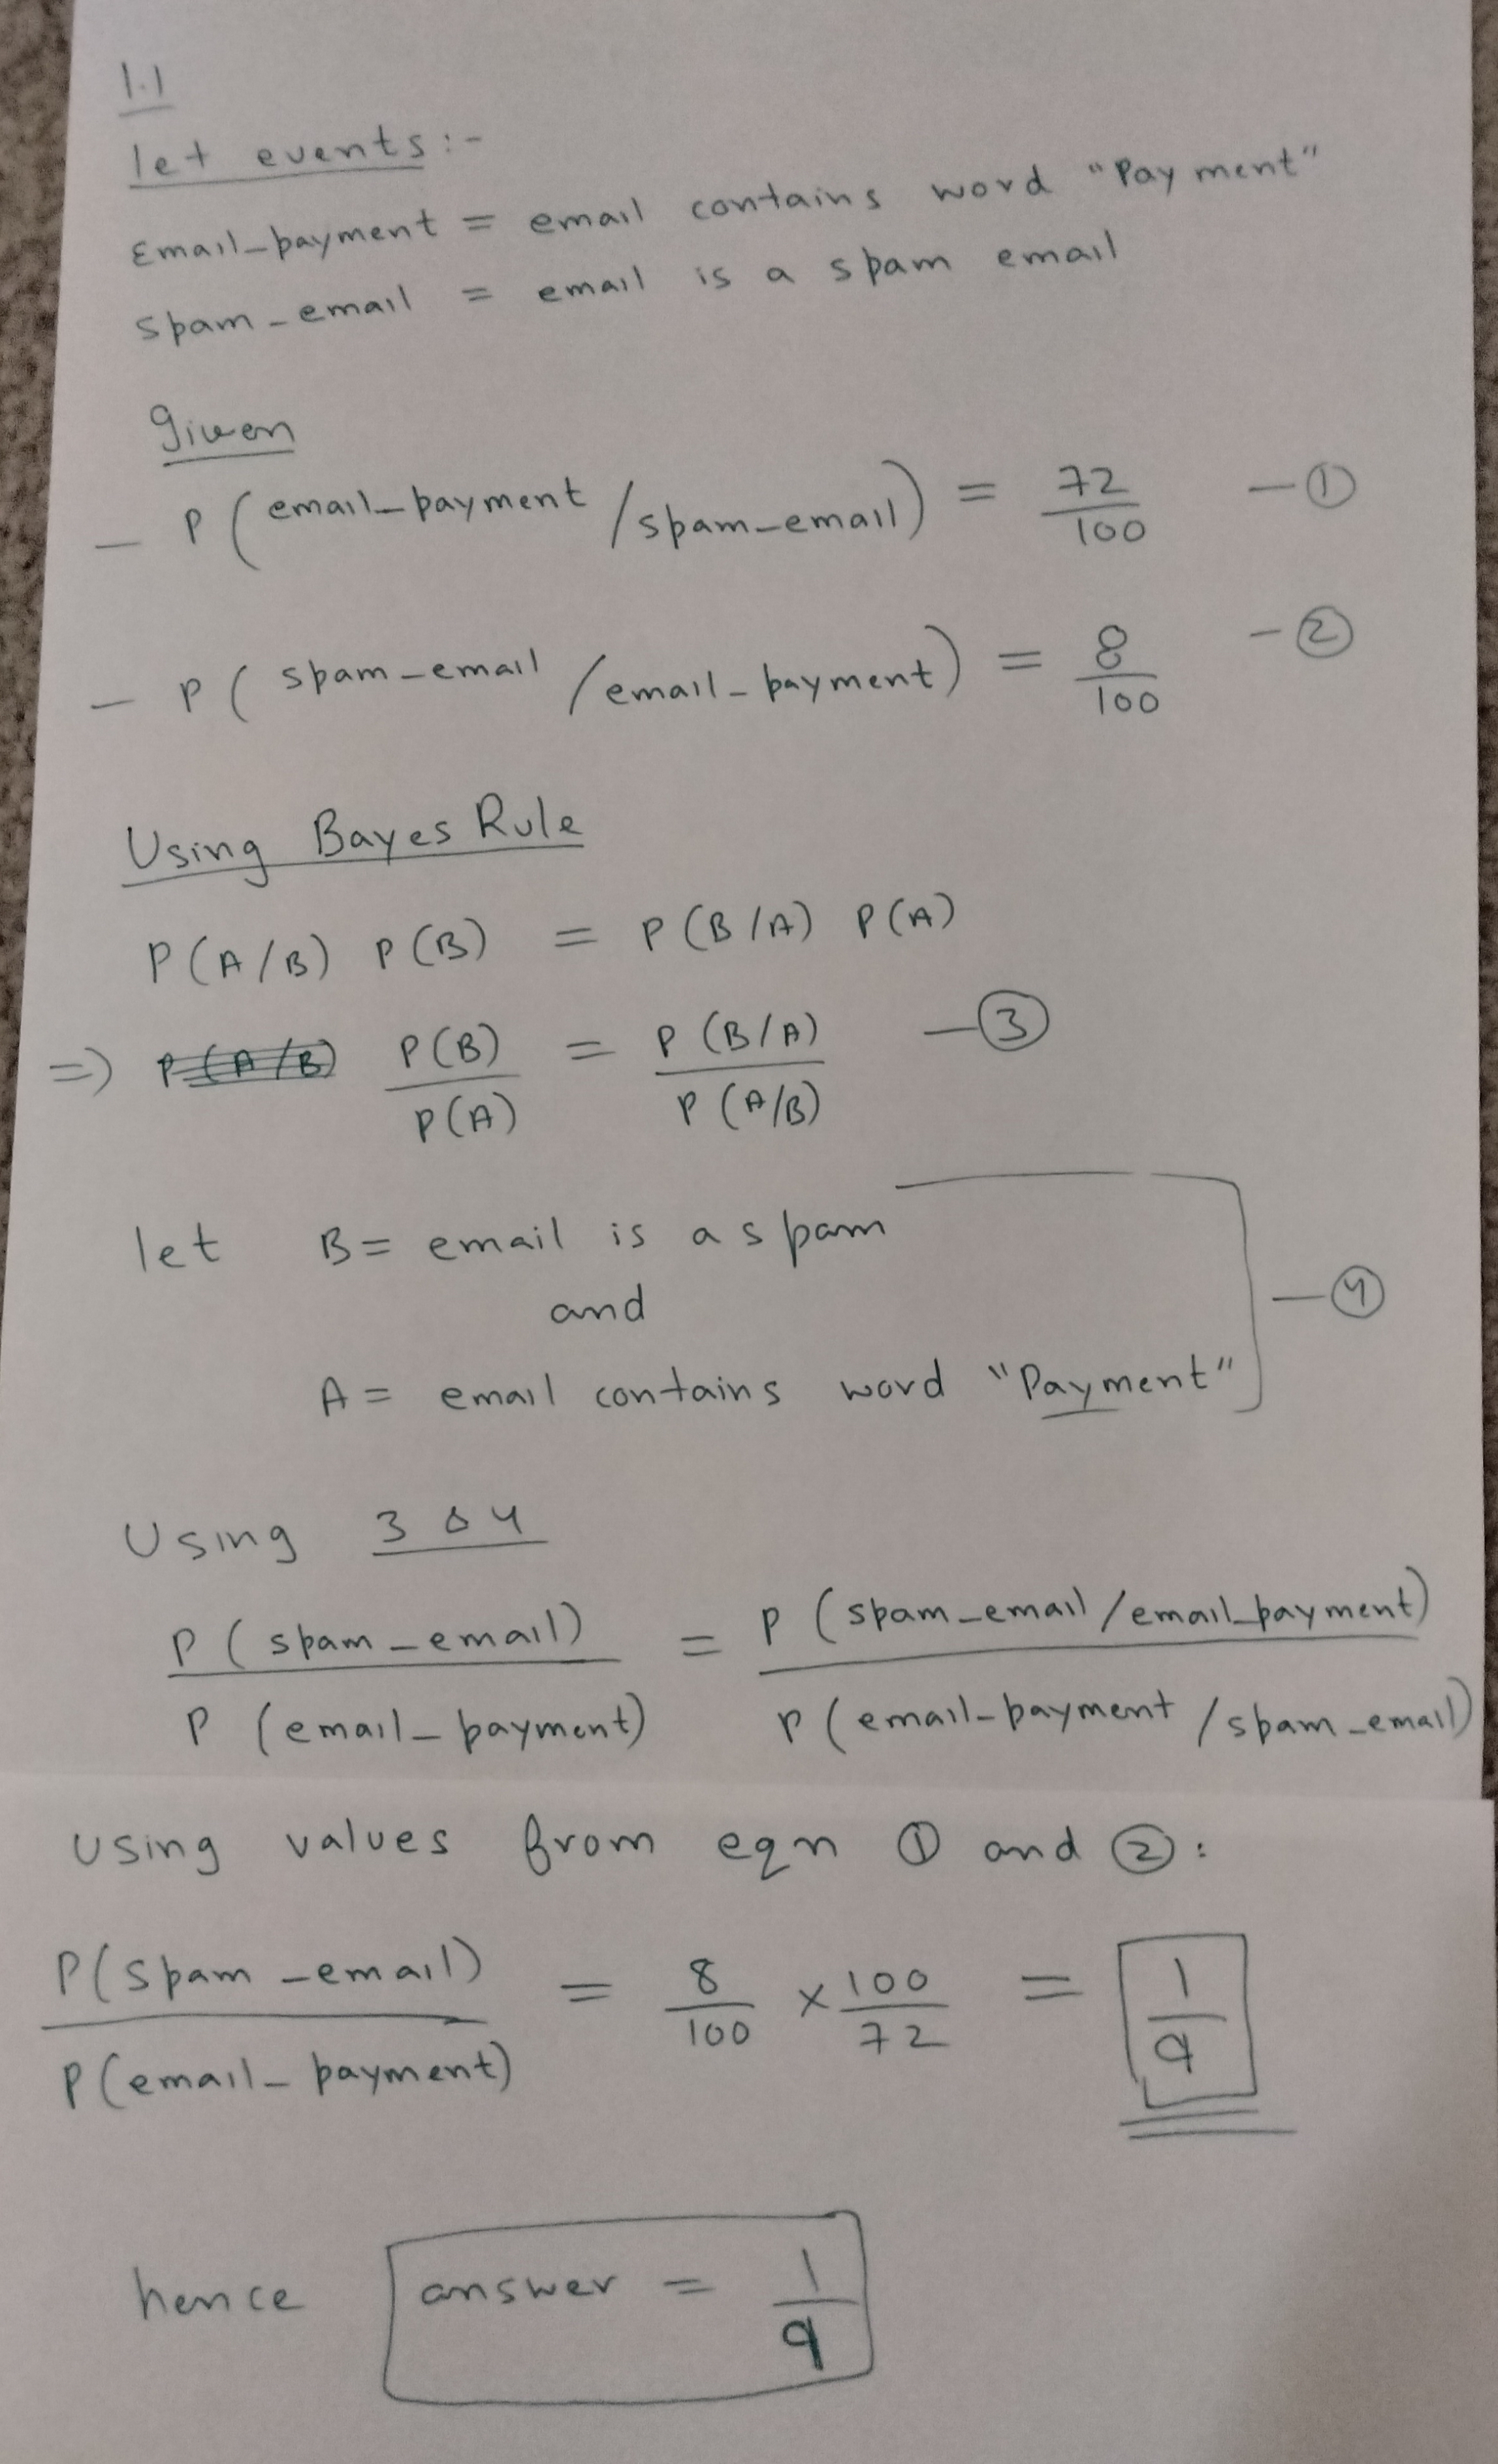 1.1
let events:-
Email_payment = email contains word "Payment"
spam_email = email is a spam email
given
— P(email_payment/spam_email) = 72/100 —①
— P(spam_email/email_payment) = 8/100 —②
Using Bayes Rule
P(A/B) P(B) = P(B/A) P(A)
=> P(A/B) P(B)/P(A) = P(B/A)/P(A/B) —③
let B= email is a spam
and
A= email contains word "Payment" —④
Using 3 & 4
P(spam_email)/P(email_payment) = P(spam_email/email_payment)/P(email_payment/spam_email)
using values from eqn ① and ②:
P(spam_email)/P(email_payment) = 8/100 × 100/72 = 1/9
hence answer = 1/9